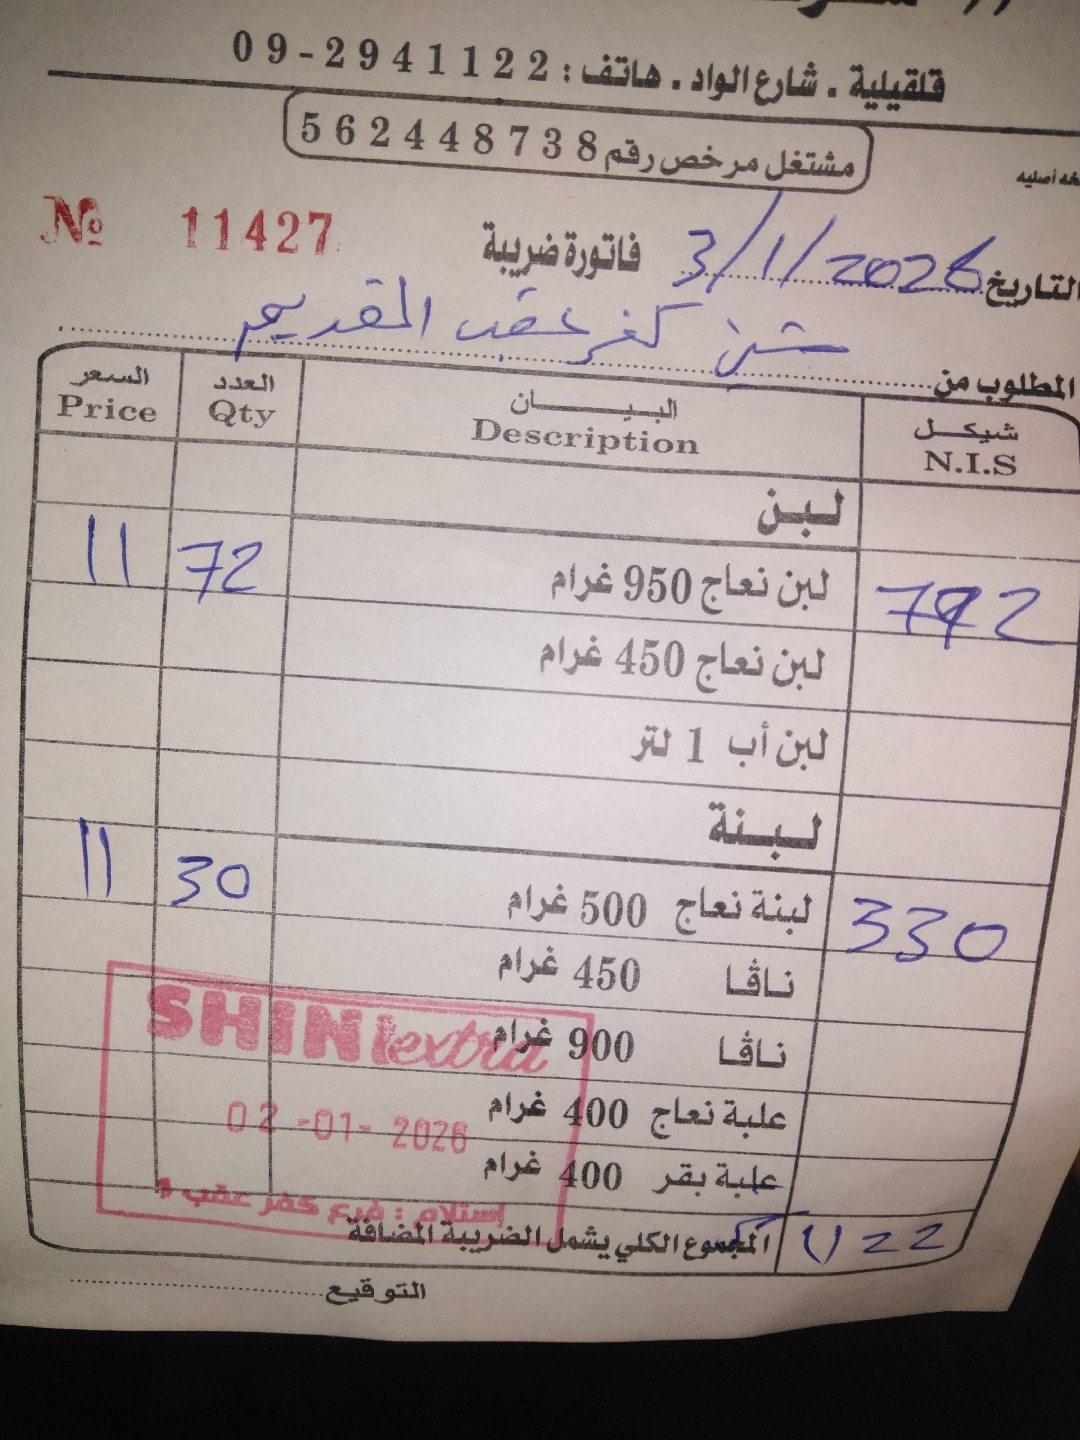 قلقيلية . شارع الواد . هاتف : 09-2941122
مشتغل مرخص رقم 562448738
№ 11427
فاتورة ضريبة
التاريخ 3/1/2026
المطلوب من شيني كفر عقب القديم
السعر العدد البيان شيكل
Price Qty Description N.I.S
لبن
11 72 لبن نعاج 950 غرام 792
لبن نعاج 450 غرام
لبن أب 1 لتر
لبنة
11 30 لبنة نعاج 500 غرام 330
ناڤا 450 غرام
ناڤا 900 غرام
علبة نعاج 400 غرام
علبة بقر 400 غرام
المجموع الكلي يشمل الضريبة المضافة 1122
SHINI extra
02-01-2026
إستلام : فرع كفر عقب 1
التوقيع